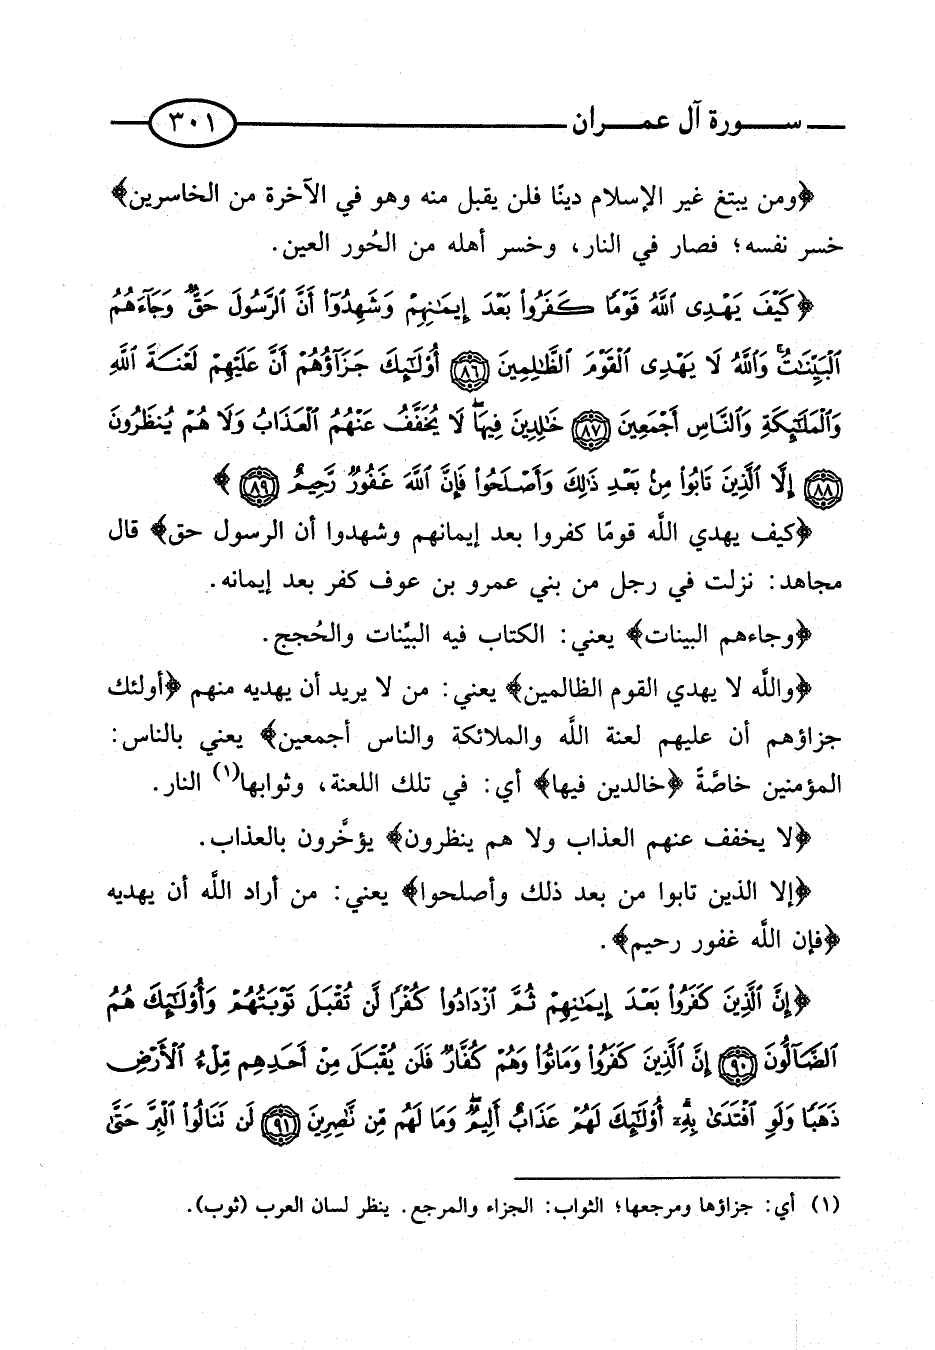 سورة آل عمران ٣٠١
﴿ومن يبتغ غير الإسلام دينًا فلن يقبل منه وهو في الآخرة من الخاسرين﴾
خسر نفسه؛ فصار في النار، وخسر أهله من الحُور العين.
﴿كَيْفَ يَهْدِى ٱللَّهُ قَوْمًا كَفَرُوا۟ بَعْدَ إِيمَـٰنِهِمْ وَشَهِدُوٓا۟ أَنَّ ٱلرَّسُولَ حَقٌّ وَجَآءَهُمُ
ٱلْبَيِّنَـٰتُ ۚ وَٱللَّهُ لَا يَهْدِى ٱلْقَوْمَ ٱلظَّـٰلِمِينَ ٨٦ أُو۟لَـٰٓئِكَ جَزَآؤُهُمْ أَنَّ عَلَيْهِمْ لَعْنَةَ ٱللَّهِ
وَٱلْمَلَـٰٓئِكَةِ وَٱلنَّاسِ أَجْمَعِينَ ٨٧ خَـٰلِدِينَ فِيهَا ۖ لَا يُخَفَّفُ عَنْهُمُ ٱلْعَذَابُ وَلَا هُمْ يُنظَرُونَ
٨٨ إِلَّا ٱلَّذِينَ تَابُوا۟ مِنۢ بَعْدِ ذَٰلِكَ وَأَصْلَحُوا۟ فَإِنَّ ٱللَّهَ غَفُورٌ رَّحِيمٌ ٨٩﴾
﴿كيف يهدي اللَّه قومًا كفروا بعد إيمانهم وشهدوا أن الرسول حق﴾ قال
مجاهد: نزلت في رجل من بني عمرو بن عوف كفر بعد إيمانه.
﴿وجاءهم البينات﴾ يعني: الكتاب فيه البيِّنات والحُجج.
﴿واللَّه لا يهدي القوم الظالمين﴾ يعني: من لا يريد أن يهديه منهم ﴿أولئك
جزاؤهم أن عليهم لعنة اللَّه والملائكة والناس أجمعين﴾ يعني بالناس:
المؤمنين خاصَّةً ﴿خالدين فيها﴾ أي: في تلك اللعنة، وثوابها(١) النار.
﴿لا يخفف عنهم العذاب ولا هم ينظرون﴾ يؤخَّرون بالعذاب.
﴿إلا الذين تابوا من بعد ذلك وأصلحوا﴾ يعني: من أراد اللَّه أن يهديه
﴿فإن اللَّه غفور رحيم﴾.
﴿إِنَّ ٱلَّذِينَ كَفَرُوا۟ بَعْدَ إِيمَـٰنِهِمْ ثُمَّ ٱزْدَادُوا۟ كُفْرًا لَّن تُقْبَلَ تَوْبَتُهُمْ وَأُو۟لَـٰٓئِكَ هُمُ
ٱلضَّآلُّونَ ٩٠ إِنَّ ٱلَّذِينَ كَفَرُوا۟ وَمَاتُوا۟ وَهُمْ كُفَّارٌ فَلَن يُقْبَلَ مِنْ أَحَدِهِم مِّلْءُ ٱلْأَرْضِ
ذَهَبًا وَلَوِ ٱفْتَدَىٰ بِهِۦٓ ۗ أُو۟لَـٰٓئِكَ لَهُمْ عَذَابٌ أَلِيمٌ وَمَا لَهُم مِّن نَّـٰصِرِينَ ٩١ لَن تَنَالُوا۟ ٱلْبِرَّ حَتَّىٰ
(١) أي: جزاؤها ومرجعها؛ الثواب: الجزاء والمرجع. ينظر لسان العرب (ثوب).